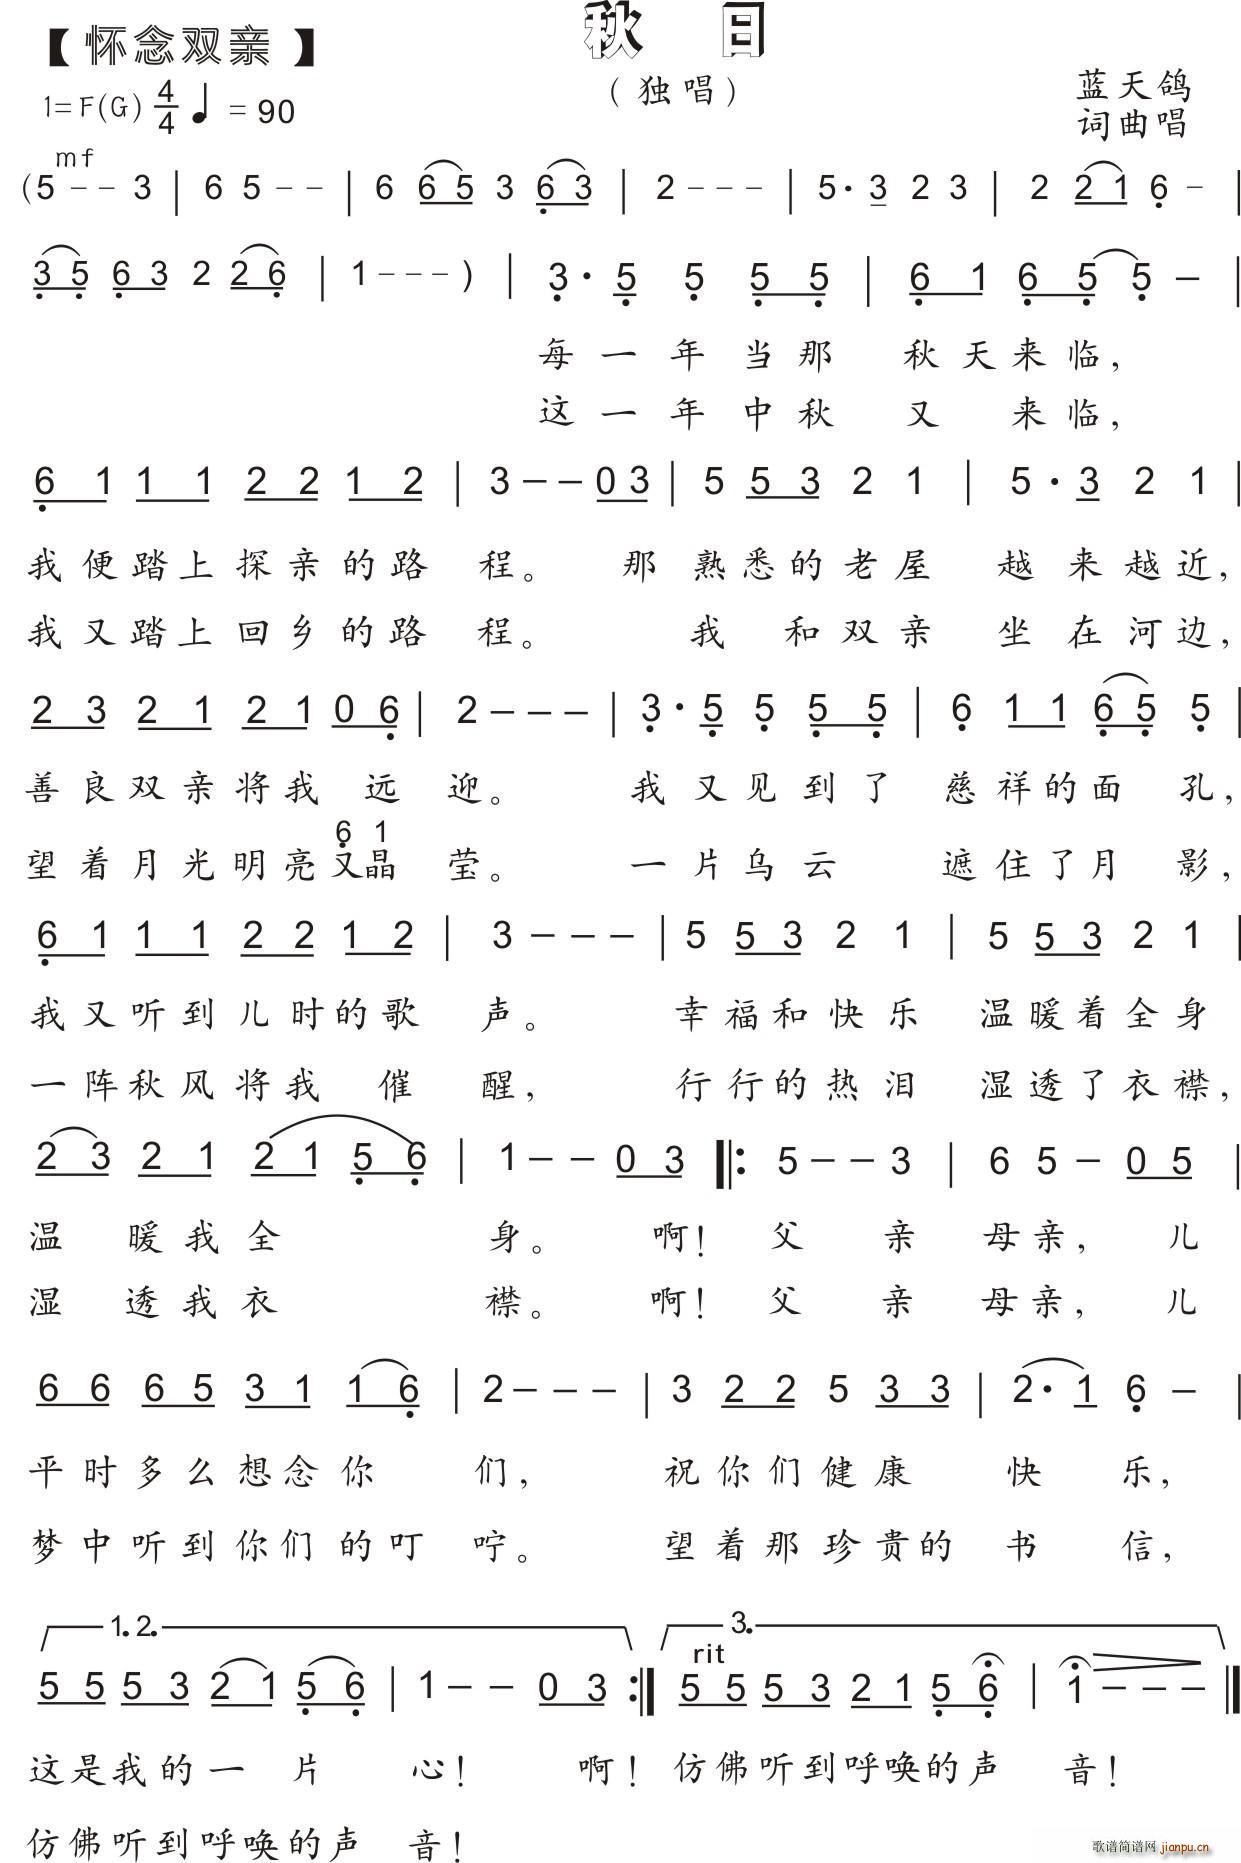 【怀念双亲】
秋 日
（独唱）
1=F(G) 4/4 ♩= 90
蓝天鸽
词曲唱
mf
(5 - - 3 | 6 5 - - | 6 6 5 3 6 3 | 2 - - - | 5· 3 2 3 | 2 2 1 6 - |
3 5 6 3 2 2 6 | 1 - - - ) | 3· 5 5 5 5 | 6 1 6 5 5 - |
每一年当那 秋天来临，
这一年中秋 又 来临，
6 1 1 1 2 2 1 2 | 3 - - 0 3 | 5 5 3 2 1 | 5· 3 2 1 |
我便踏上探亲的路 程。 那 熟悉的老屋 越来越近，
我又踏上回乡的路 程。 我 和双亲 坐在河边，
2 3 2 1 2 1 0 6 | 2 - - - | 3· 5 5 5 5 | 6 1 1 6 5 5 |
善良双亲将我 远 迎。 我又见到了 慈祥的面 孔，
6 1
望着月光明亮又晶 莹。 一片乌云 遮住了月 影，
6 1 1 1 2 2 1 2 | 3 - - - | 5 5 3 2 1 | 5 5 3 2 1 |
我又听到儿时的歌 声。 幸福和快乐 温暖着全身
一阵秋风将我 催 醒， 行行的热泪 湿透了衣襟，
2 3 2 1 2 1 5 6 | 1 - - 0 3 ‖: 5 - - 3 | 6 5 - 0 5 |
温 暖我全 身。 啊！父 亲 母亲， 儿
湿 透我衣 襟。 啊！父 亲 母亲， 儿
6 6 6 5 3 1 1 6 | 2 - - - | 3 2 2 5 3 3 | 2· 1 6 - |
平时多么想念你 们， 祝你们健康 快 乐，
梦中听到你们的叮 咛。 望着那珍贵的 书 信，
1. 2. 3.
rit
5 5 5 3 2 1 5 6 | 1 - - 0 3 :‖ 5 5 5 3 2 1 5 6 | 1 - - - ‖
这是我的一 片 心！ 啊！仿佛听到呼唤的声 音！
仿佛听到呼唤的声 音！
歌谱简谱网 jianpu.cn